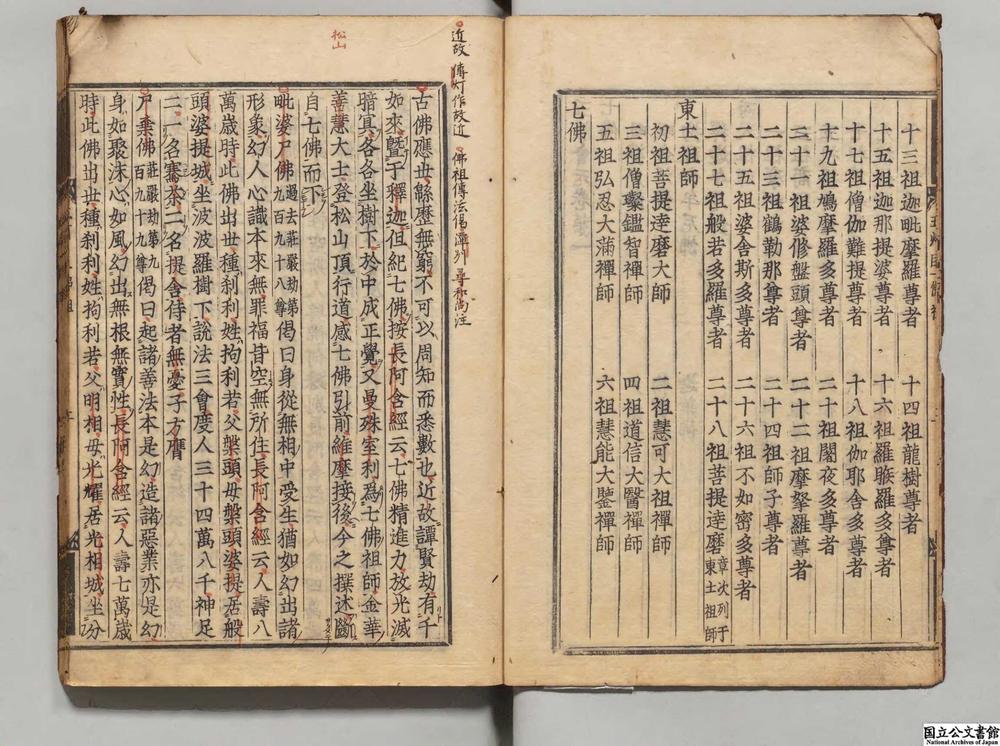 十三祖迦毗摩羅尊者　十四祖龍樹尊者
十五祖迦那提婆尊者　十六祖羅睺羅多尊者
十七祖僧伽難提尊者　十八祖伽耶舍多尊者
十九祖鳩摩羅多尊者　二十祖闍夜多尊者
二十一祖婆修盤頭尊者　二十二祖摩拏羅尊者
二十三祖鶴勒那尊者　二十四祖師子尊者
二十五祖婆舍斯多尊者　二十六祖不如密多尊者
二十七祖般若多羅尊者　二十八祖菩提達磨章次列于東土祖師
東土祖師
初祖菩提達磨大師　二祖慧可大祖禪師
三祖僧璨鑑智禪師　四祖道信大醫禪師
五祖弘忍大滿禪師　六祖慧能大鑒禪師
七佛
近故 傳灯作故近
佛祖傳法偈
松山
古佛應世緜歷無窮不可以周知而悉數也近故譚賢劫有千
如來暨于釋迦但紀七佛按長阿含經云七佛精進力放光滅
暗冥各各坐樹下於中成正覺又曼殊室利爲七佛祖師金華
善慧大士登松山頂行道感七佛引前維摩接後今之撰述斷
自七佛而下
毗婆尸佛過去莊嚴劫第九百九十八尊偈曰身從無相中受生猶如幻出諸
形象幻人心識本來無罪福皆空無所住長阿含經云人壽八
萬歲時此佛出世種刹利姓拘利若父槃頭母槃頭婆提居般
頭婆提城坐波波羅樹下說法三會度人三十四萬八千神足
二一名騫荼二名提舍侍者無憂子方膺
尸棄佛莊嚴劫第九百九十九尊偈曰起諸善法本是幻造諸惡業亦是幻
身如聚沫心如風幻出無根無實性長阿含經云人壽七萬歲
時此佛出世種刹利姓拘利若父明相母光耀居光相城坐分
国立公文書館
National Archives of Japan